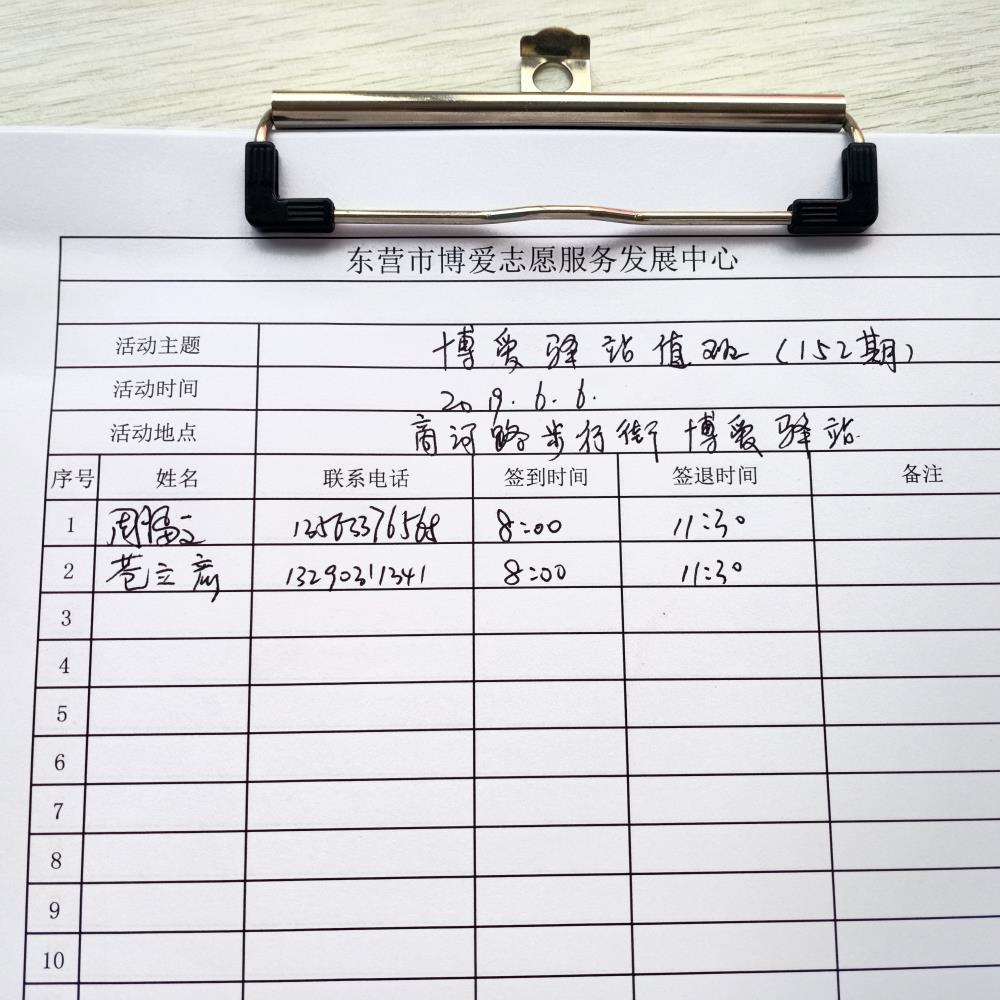 东营市博爱志愿服务发展中心
活动主题 博爱驿站值班（152期）
活动时间 2019.6.6.
活动地点 商河路步行街博爱驿站
序号 姓名 联系电话 签到时间 签退时间 备注
1 周福立 8:00 11:30
2 苍立 13290311341 8:00 11:30
3
4
5
6
7
8
9
10